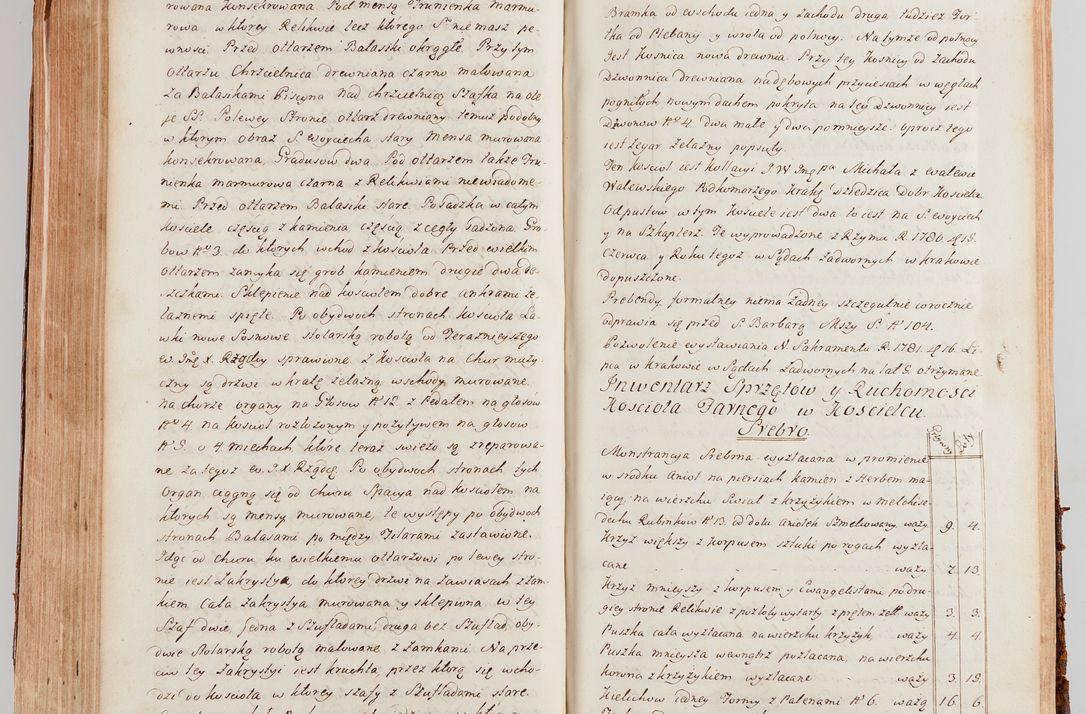 rowana konsekrowana. Pod mensą Trunienka marmu-
rowa w ktorey Relikwie lecz ktorego S. niemasz pe-
wnosci. Przed ołtarzem Balaski okrągłe. Przy tym
ołtarzu Chrzcielnica drewniana czarno malowana
za Balaskami Piscyna nad chrzcielnicą Szafka na ole
je SS. Po lewey stronie ołtarz drewniany temuż podobny
w ktorym obraz S. Woyciecha stary Mensa murowana
konsekrowana, Gradusow dwa. Pod ołtarzem także Tru-
nienka marmurowa czarna z Relikwiami niewiadome-
mi Przed ołtarzem Balaski stare. Posadzka w całym
kosciele częscią z kamienia częscią z cegły sadzona Gro-
bow Nro 3. do ktorych wchod z kosciola. Przed wielkim
ołtarzem zamyka się grob kamieniem drugie dwa de-
szczkami. Sklepienie nad kosciołem dobre ankrami że-
laznemi spięte. Po obydwoch stronach kosciola Ła-
wki nowe sosnowe stolarską robotą od Teraznieyszego
X. Rządcy sprawione. Z kosciola na Chur muzy-
czny są drzwi w kratę żelazną wschody murowane
na chorze organy na Głosow Nro 12. z Pedałem na głosow
Nro 4. na koscioł rozłożonym y pozytywem na głosow
o 4 miechach, ktore teraz swieżo są zreparowa-
ne za tegoż X Rządcę. Po obydwoch stronach tych
Organ ciągną się od churu Spacya nad kosciołem na
ktorych są mensy murowane, te występy po obydwoch
stronach Balasami pomiędzy Filarami zastawione.
Idąc od churu ku wielkiemu ołtarzowi po lewey stro-
nie iest Zakrystya do ktorey drzwi na zawiasach z zam-
kiem. Cała zakrystya murowana y sklepiona w tey
Szaf dwie, jedna z Szufladami druga bez Szuflad, oby-
dwie stolarską robotą malowane z Zamkami. Na prze-
ciw tey Zakrystyi iest kruchta, przez ktorą się wcho-
dzi do kosciola w ktorey szafy z Szufladami stare.
Bramka od wschodu iedna y zachodu druga tudziez For-
tka od Plebany y wrota od połnocy. Na tymże od połnocy
Jest Kosnica nowa drewnia. Przy tey Kosnicy od Zachodu
Dzwonnica drewniana na dębowych przyciesiach w węgłach
pogniłych nowym dachem pokryta na tey Dzwonnicy iest
Dzwonow Nro 4. dwa małe y dwa pomnieysze. Oprocz tego
iest zegar żelazny popsuty.
Ten koscioł iest kollacyi J. W Jmę Pa Michała z Walewic
Walewskiego Podkomorzego Dziedzica Dobr Koscielca
Odpustow w tym Kosciele iest dwa to iest na S. Woyciech
y na Szkaplerz. Te wyprowadzone z Rzymu R. 1780. d 18.
Czerwca y Roku tegoż w Sądach Zadwornych w krakowie
dopuszczone.
Prebendy formalney niema Żadney szczegulnie corocznie
odprawia się przed S. Barbarą Mszy S. Nro 104.
Pozwolenie wystawiania N. Sakramentu R. 1781. d 16. Li-
pca w krakowie w Sądach Zadwornych na lat otrzymane
Inwentarz Sprzętow y Ruchomości
Kościoła Farnego w Kościelcu.
Srebro
Grzywny Łoty
Monstrancya srebrna wyzłacana w promienie
w srodku Anioł na piersiach kamien z Herbem ma-
iący, na wierzchu Swiat z krzyżykiem w melchise-
dechu Rubinkow Nro 13. od dołu aniołek Szmelcowany, waży 9. 4.
Krzyż większy z korpusem sztuki po rogach wyzła-
cane . . . . . waży 7. 13.
Krzyż mnieyszy z korpusem y Ewangelistami po dru-
giey stronie Relikwie z pozłoty wytarty z prętem waży 3. 3.
Puszka cała wyzłacana na wierzchu krzyżyk waży 4. 4.
Puszka mnieysza wewnątrz pozłacana, na wierzchu
korona z krzyżykiem wyzłacane waży 3. 18.
Kielichow iedney Formy z Patenami Nro 6. ważą 16. 6.